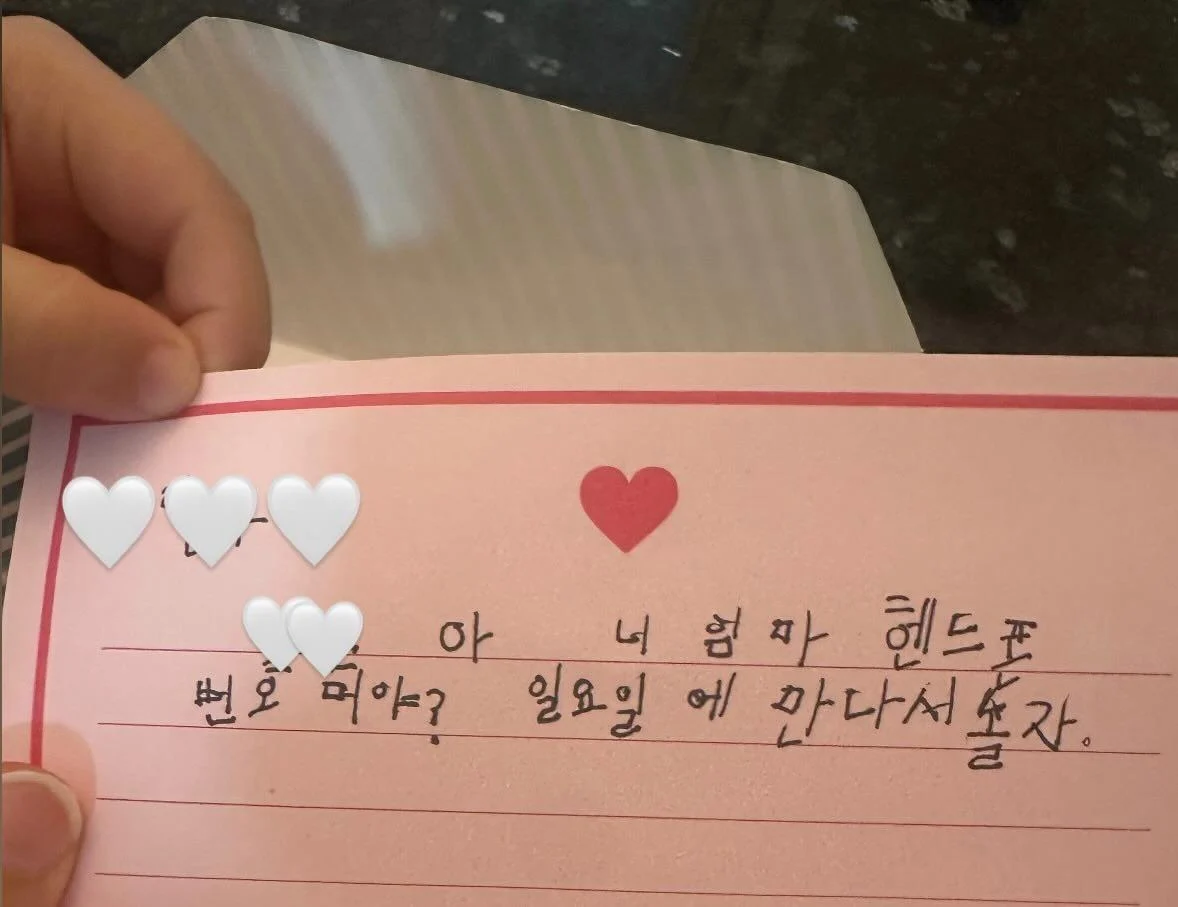 아 너 엄마 헨드폰
번호 머야? 일요일 에 만다서 놀자.